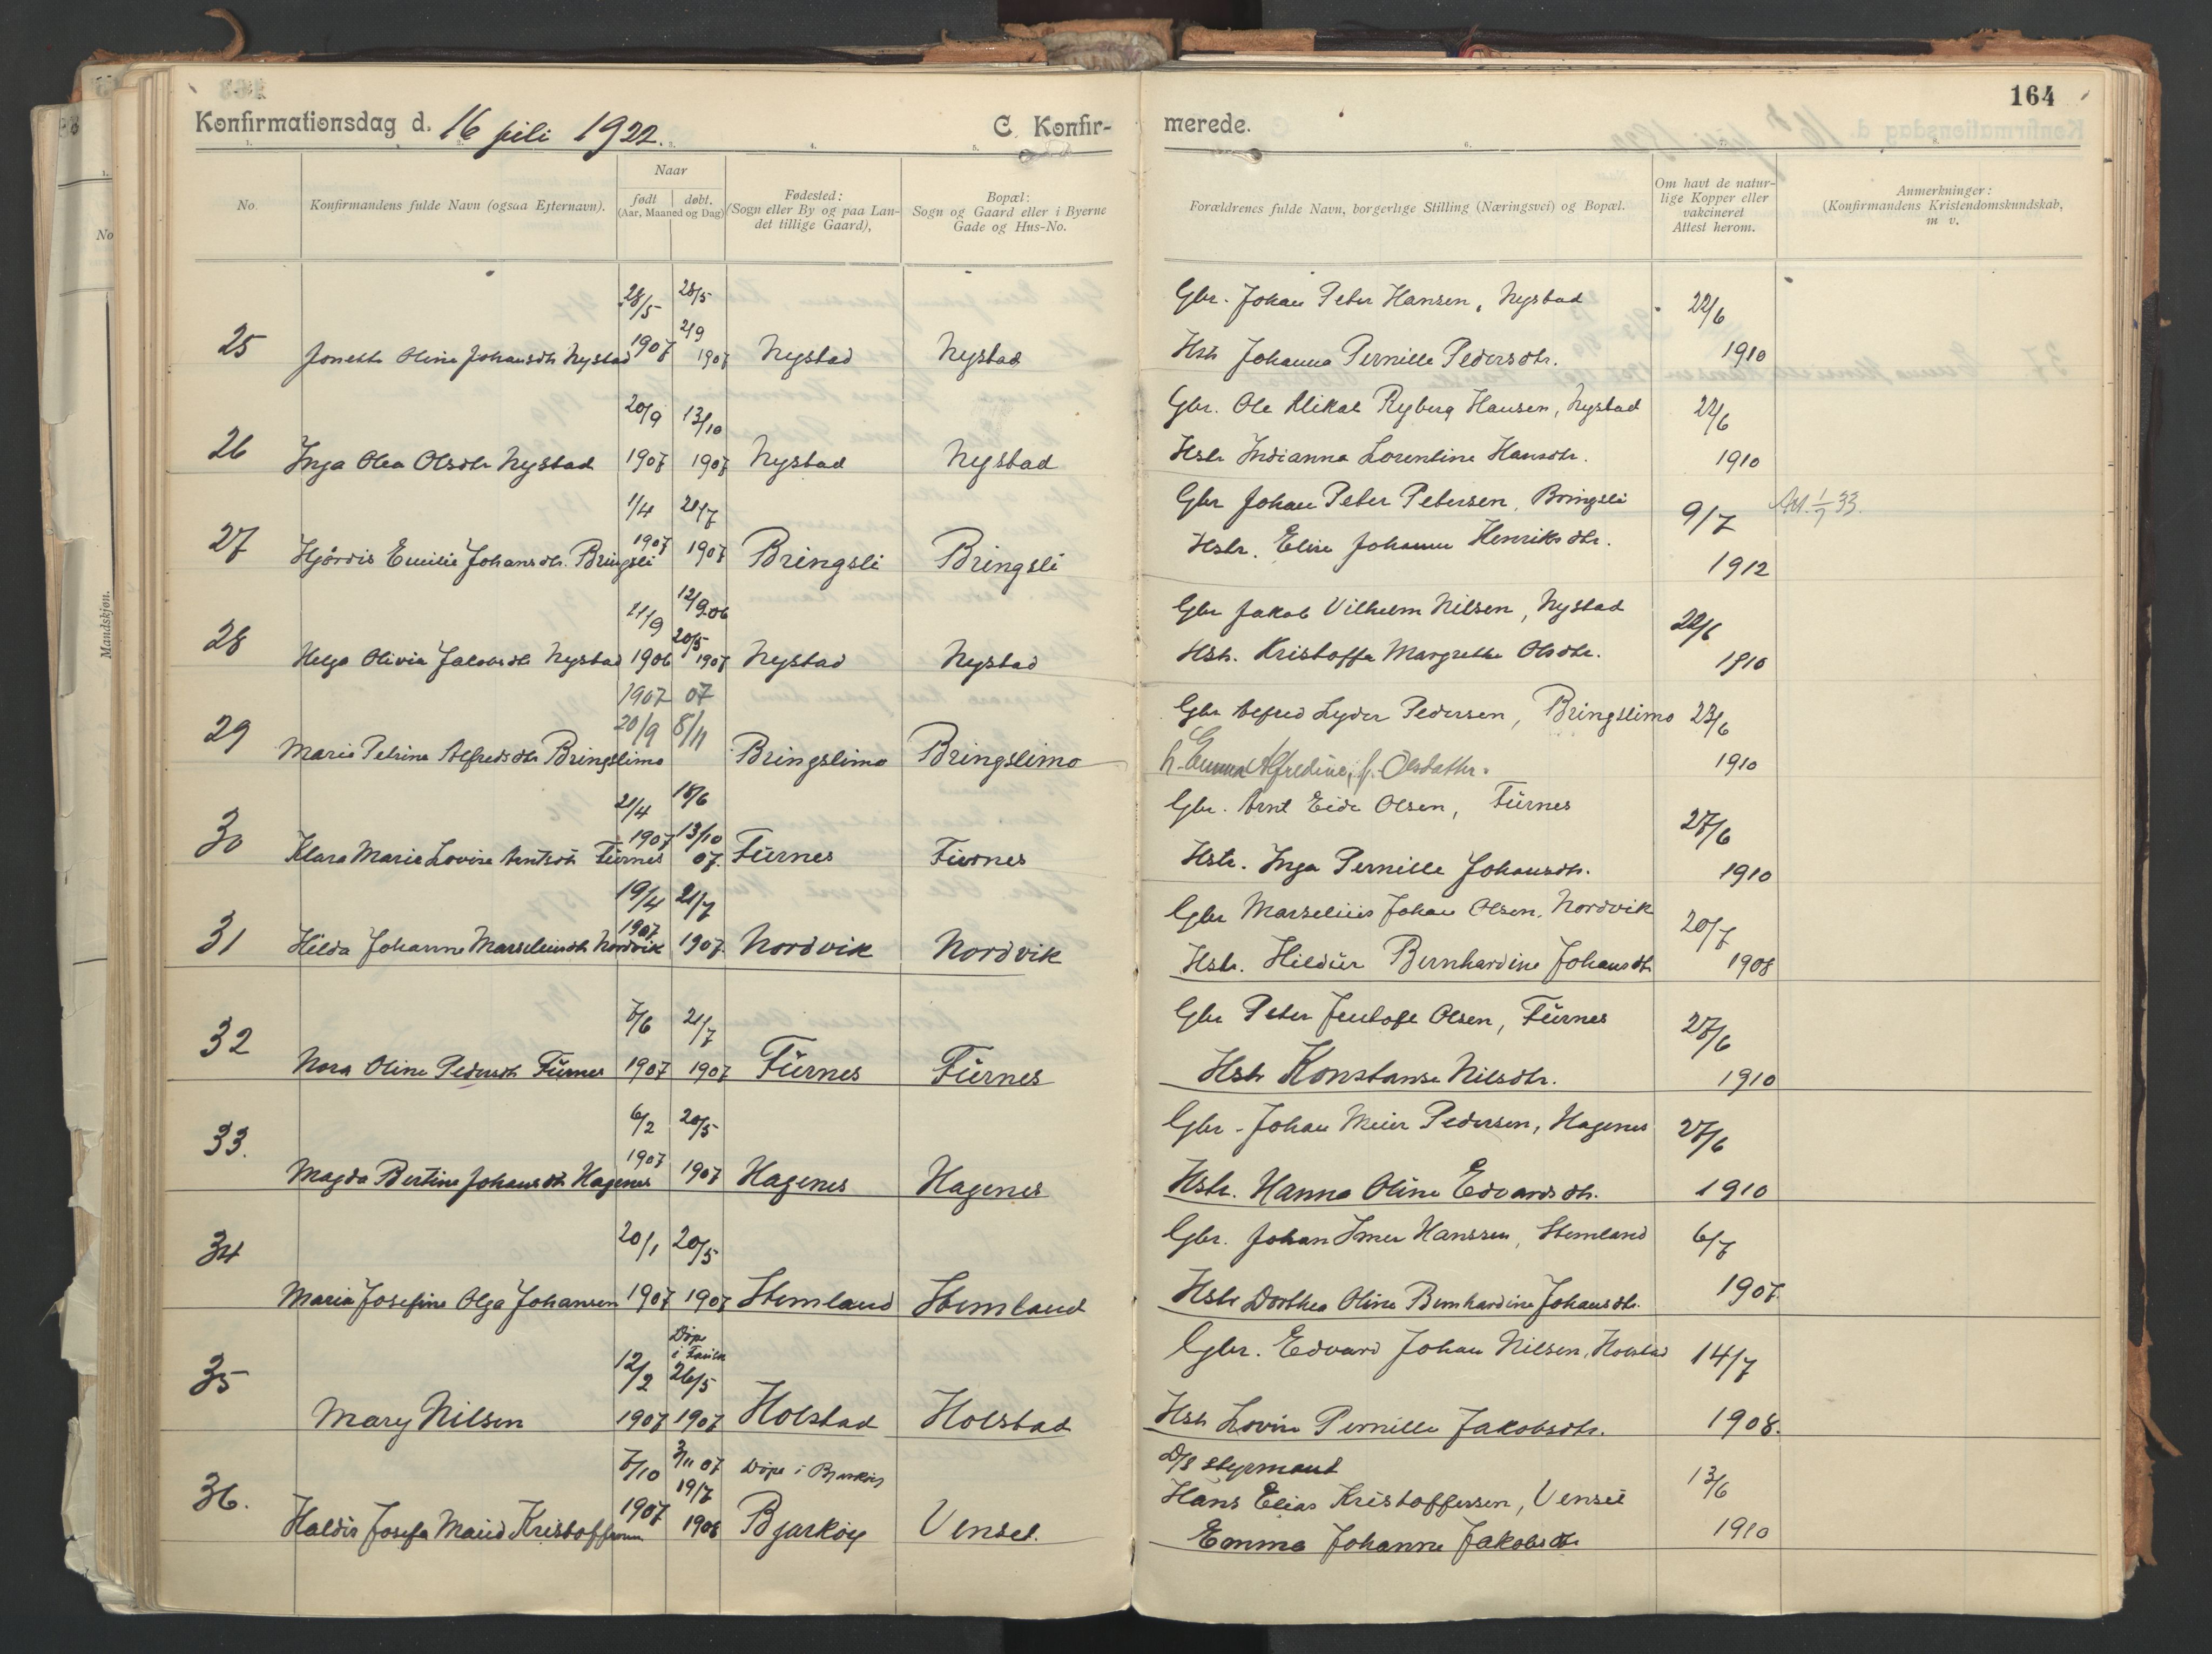 164
Konfirmationsdag d. 16 juli 1922. C. Konfirmerede.
1. 3. 4. 5. 6. 8.
No.
Konfirmandens fulde Navn (ogsaa Efternavn).
Naar
født døbt.
(Aar, Maaned og Dag)
Fødested:
(Sogn eller By og paa Lan-
det tillige Gaard),
Bopæl:
Sogn og Gaard eller i Byerne
Gade og Hus-No.
Forældrenes fulde Navn, borgerlige Stilling (Næringsvei) og Bopæl.
Om havt de natur-
lige Kopper eller
vakcineret
Attest herom.
Anmerkninger:
(Konfirmandens Kristendomskundskab,
m v.
No
Mandskjøn.
28/5 28/5 Gbr. Johan Peter Hansen, Nystad 22/6
25 Jonette Oline Johansdtr Nystad 1907 2/9 1907 Nystad Nystad Hstr Johanna Pernille Pedersdtr. 1910
20/9 13/10 Gbr. Ole Mikal Ryberg Hansen, Nystad 22/6
26 Inga Olea Olsdtr Nystad 1907 1907 Nystad Nystad Hstr Indianna Lorentine Hansdtr. 1910
1/4 21/7 Gbr Johan Peter Petersen, Bringsli 9/7 Att. 1/7 33.
27 Hjördis Emilie Johansdtr. Bringsli 1907 1907 Bringsli Bringsli Hstr. Elise Johanne Henriksdtr. 1912
11/9 12/9 06 Gbr Jakob Vilhelm Nilsen, Nystad 22/6
28 Helga Olivia Jakobsdtr Nystad 1906 20/5 1907 Nystad Nystad Hstr. Kristoffa Margrethe Olsdtr. 1910
1907 07 Gbr Alfred Lyder Pedersen, Bringslimo 23/6
29 Marie Petrine Alfredsdtr Bringslimo 20/9 8/11 Bringslimo Bringslimo h. Emma Alfredine, f. Olsdatter. 1910
21/4 18/6 Gbr. Arnt Eide Olsen, Fürnes 27/6
30 Klara Marie Lovise Arntsdtr Fürnes 1907 13/10 07. Fürnes Fürnes Hstr. Inga Pernille Johansdtr. 1910
19/4 21/7 Gbr Marselius Johan Olsen, Nordvik 20/7
31 Hilda Johanne Marseliusdtr Nordvik 1907 1907 Nordvik Nordvik Hstr. Hildur Bernhardine Johansdtr 1908
7/6 21/7 Gbr Peter Jentoft Olsen, Fürnes 27/6
32 Nora Oline Pedersdtr Fürnes 1907 1907 Fürnes Fürnes Hstr Konstanse Nilsdtr. 1910
6/2 20/5 Gbr - Johan Meier Pedersen, Hagenes 27/6
33. Magda Bertine Johansdtr Hagenes 1907 1907 Hagenes Hagenes Hstr. Hanna Oline Edvardsdtr. 1910
20/1 20/5 Gbr. Johan Imer Hanssen, Stemland 6/7
34 Maria Josefine Olga Johansen 1907 1907 Stemland Stemland Hstr Dorthea Oline Bernhardine Johansdtr. 1907.
12/2 Döpt i 26/5 Gbr. Edvard Johan Nilsen, Holstad 14/7
35 Mary Nilsen 1907 1907 Holstad Holstad Hstr Lovise Pernille Jakobsdtr. 1908.
7/10 3/11 07 Döpt i Bjarköy D/S styrmand 13/6
36. Haldis Josefa Maud Kristoffersen 1907 19/7 1908 Bjarköy Venset. Hans Elias Kristoffersen, Venset
Emma Johanne Jakobsdtr 1910